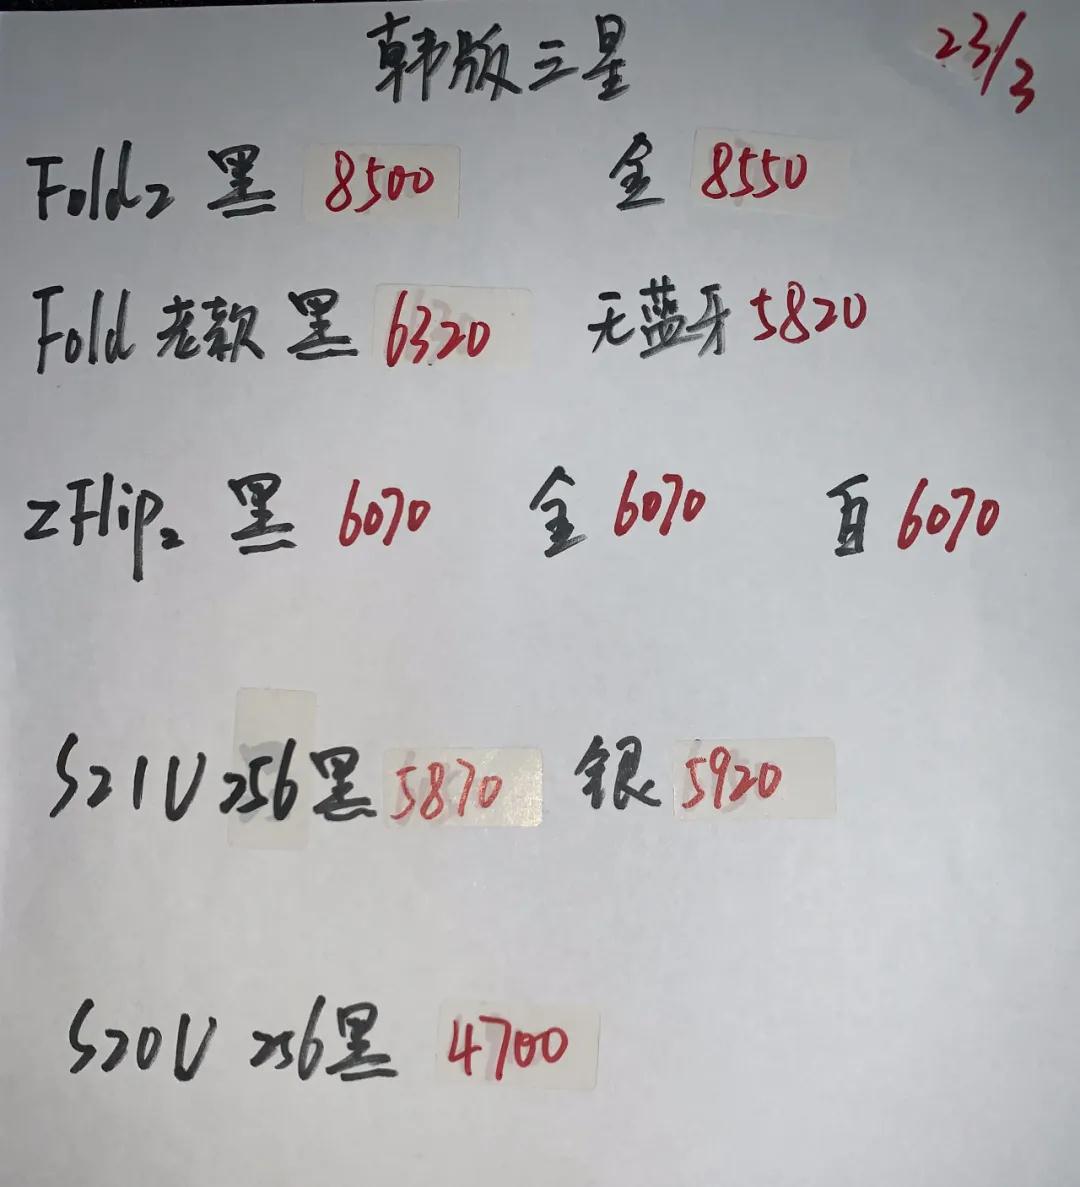 韩版三星 23/3
Fold2 黑 8500 金 8550
Fold 老款 黑 6320 无蓝牙 5820
ZFlip2 黑 6070 金 6070 白 6070
S21U 256 黑 5870 银 5920
S20U 256 黑 4700